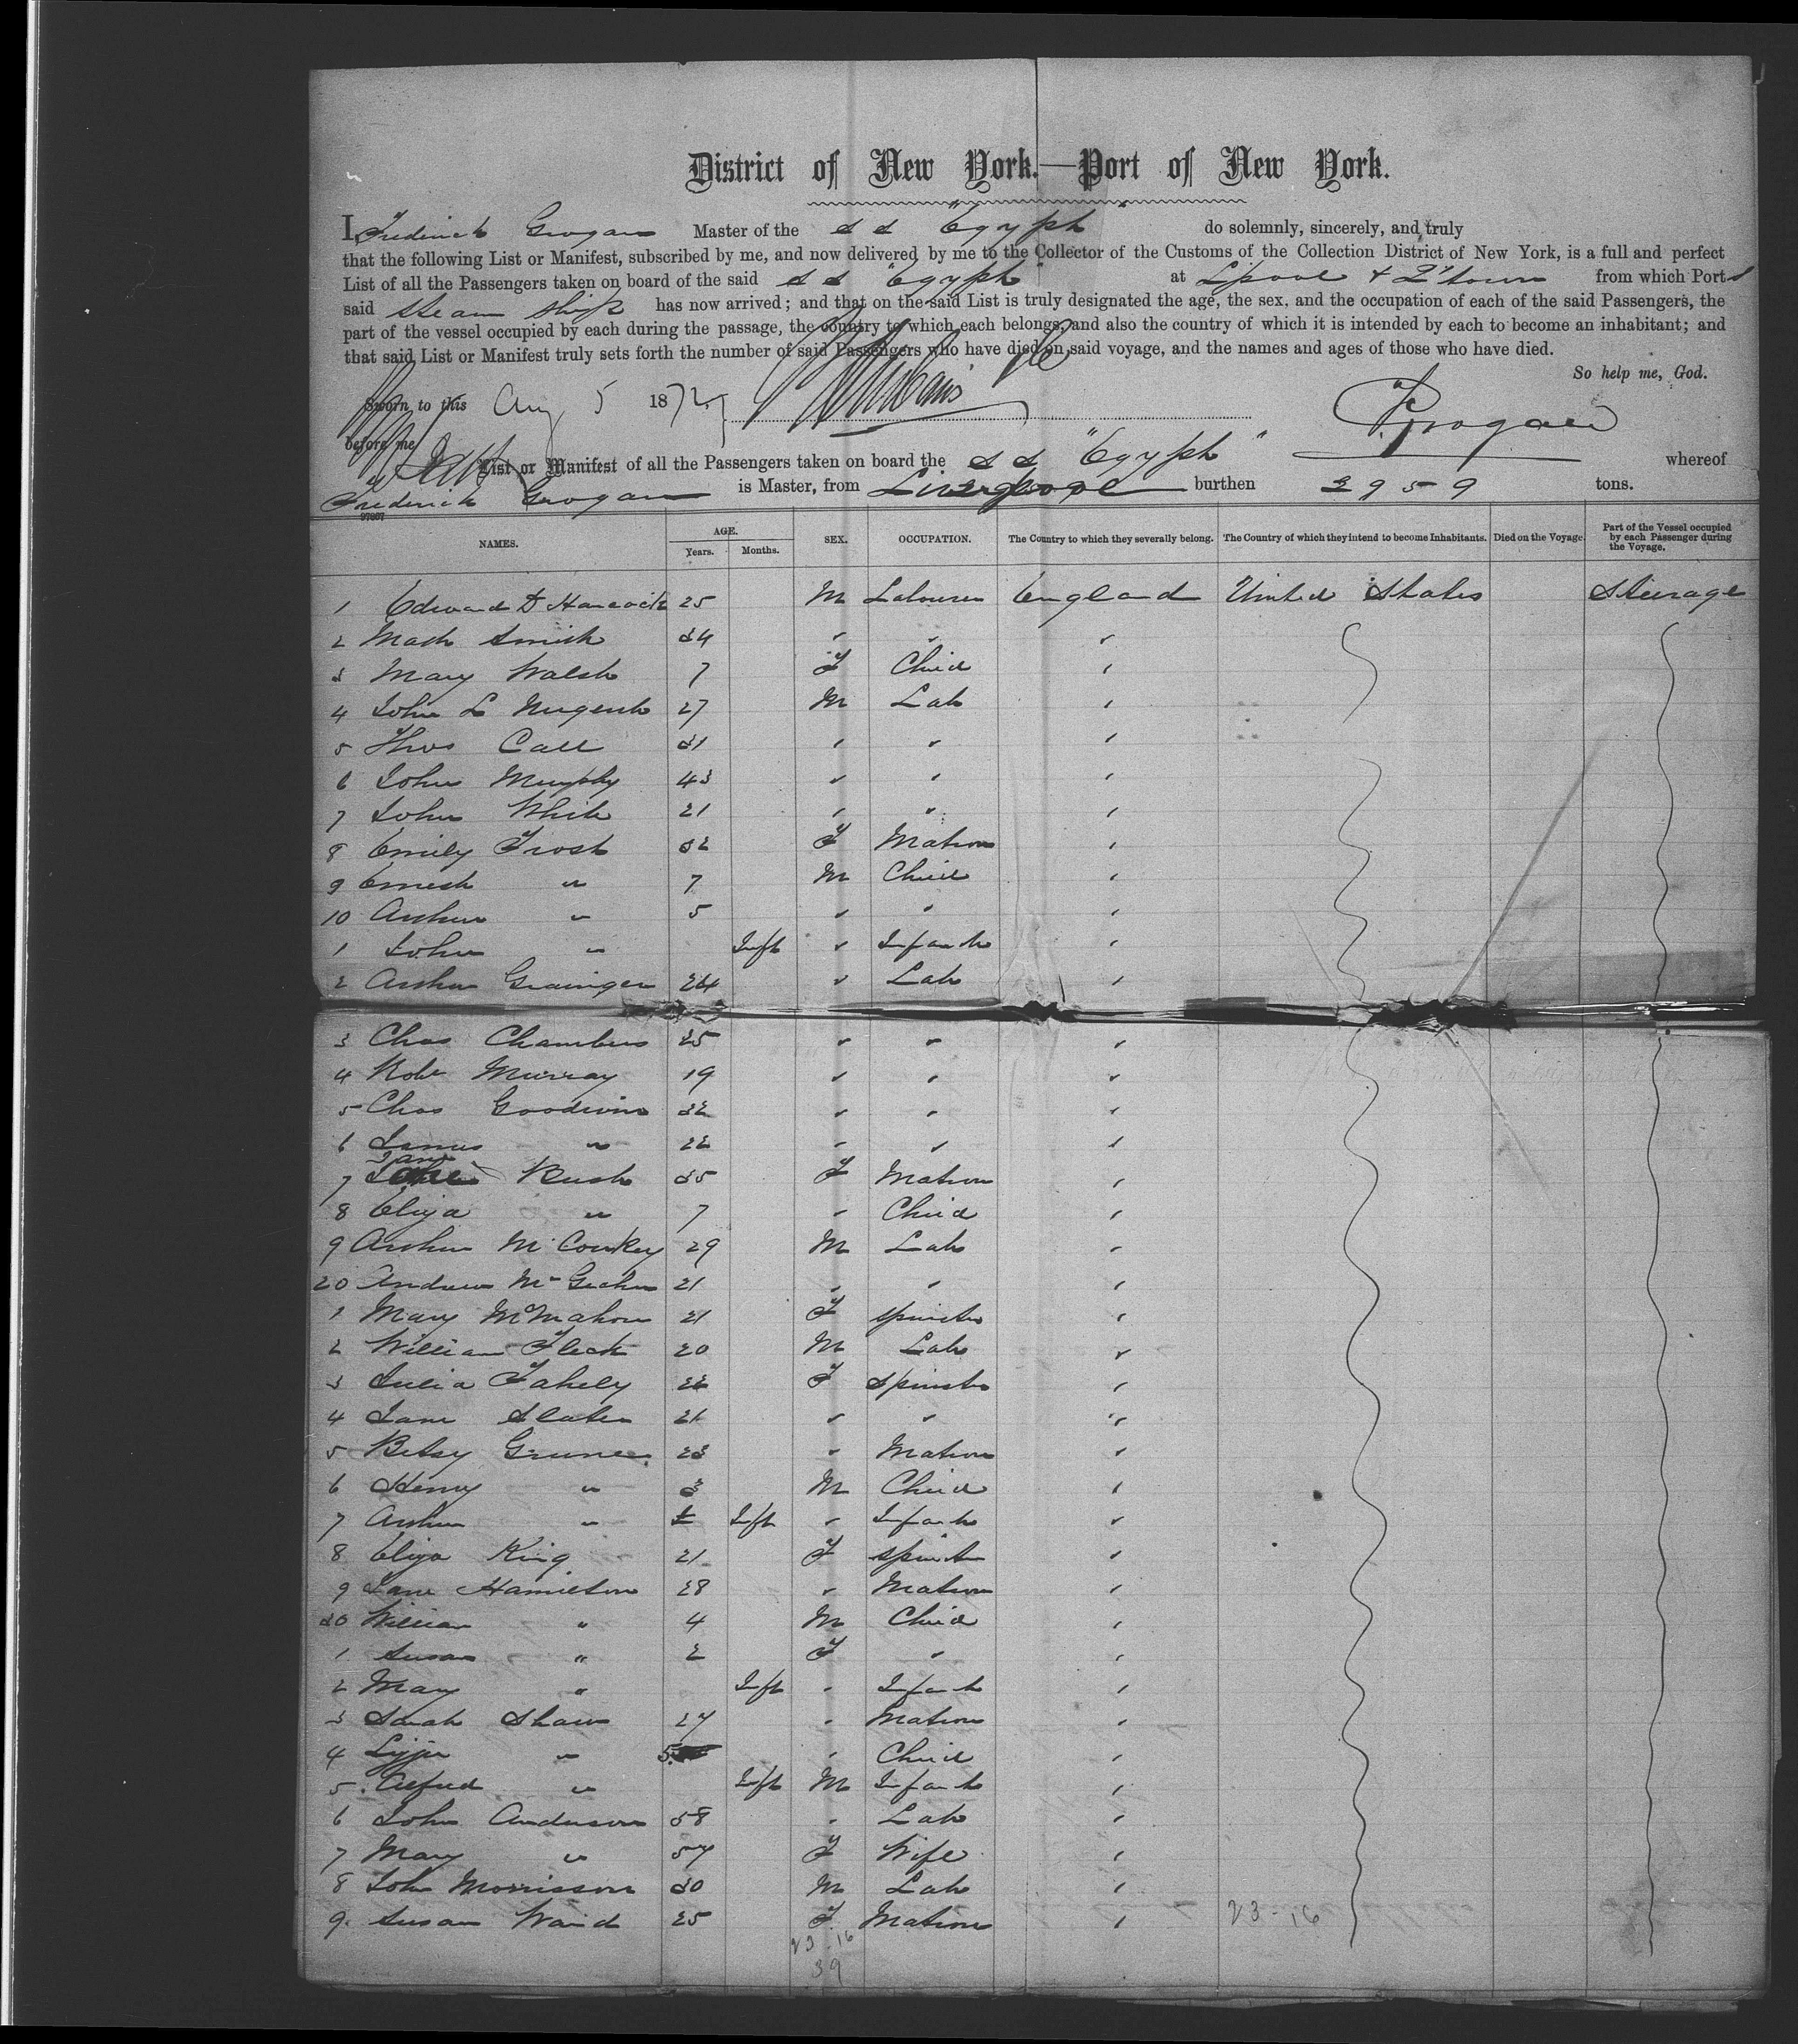 District of New York.—Port of New York.
I, Frederick Grogan Master of the S S "Egypt" do solemnly, sincerely, and truly
that the following List or Manifest, subscribed by me, and now delivered by me to the Collector of the Customs of the Collection District of New York, is a full and perfect
List of all the Passengers taken on board of the said S S "Egypt" at L'pool & Q'town from which Port s
said Steam Ship has now arrived; and that on the said List is truly designated the age, the sex, and the occupation of each of the said Passengers, the
part of the vessel occupied by each during the passage, the country to which each belongs, and also the country of which it is intended by each to become an inhabitant; and
that said List or Manifest truly sets forth the number of said Passengers who have died on said voyage, and the names and ages of those who have died.
So help me, God.
Sworn to this Aug 5 1872
before me
F. Grogan
List or Manifest of all the Passengers taken on board the S S "Egypt" whereof
Frederick Grogan is Master, from Liverpool burthen 2959 tons.
97867
NAMES. AGE. SEX. OCCUPATION. The Country to which they severally belong. The Country of which they intend to become Inhabitants. Died on the Voyage. Part of the Vessel occupied by each Passenger during the Voyage.
Years. Months.
1 Edward D Hancock 25 M Labourer England United States Steerage
2 Mach Smith 34 " " "
3 Mary Walsh 7 F Child "
4 John L Nugent 27 M Lab "
5 Thos Call 31 " " "
6 John Murphy 43 " " "
7 John White 21 " " "
8 Emily Frost 32 F Matron "
9 Ernest " 7 M Child "
10 Arthur " 5 " " "
1 John " Inft " Infant "
2 Arthur Grainger 24 " Lab "
3 Chas Chambers 25 " " "
4 Robt Murray 19 " " "
5 Chas Goodwin 32 " " "
6 James " 22 " " "
7 Jane Rush 35 F Matron "
8 Eliza " 7 " Child "
9 Arthur McConkey 29 M Lab "
20 Andrew McGeehan 21 " " "
1 Mary McMahon 21 F Spinster "
2 William Fleck 20 M Lab "
3 Julia Fahely 22 F Spinster "
4 Jane Slater 21 " " "
5 Betsy Greene 23 " Matron "
6 Henry " 3 M Child "
7 Arthur " Inft " Infant "
8 Eliza King 21 F Spinster "
9 Jane Hamilton 28 " Matron "
30 William " 4 M Child "
1 Susan " 2 F " "
2 Mary " Inft " Infant "
3 Sarah Shaw 27 " Matron "
4 Lizzie " 5 " Child "
5 Alfred " Inft M Infant "
6 John Anderson 58 " Lab "
7 Mary " 57 F Wife "
8 John Morrisson 30 M Lab "
9 Susan Ward 25 F Matron " 23-16
23-16
39